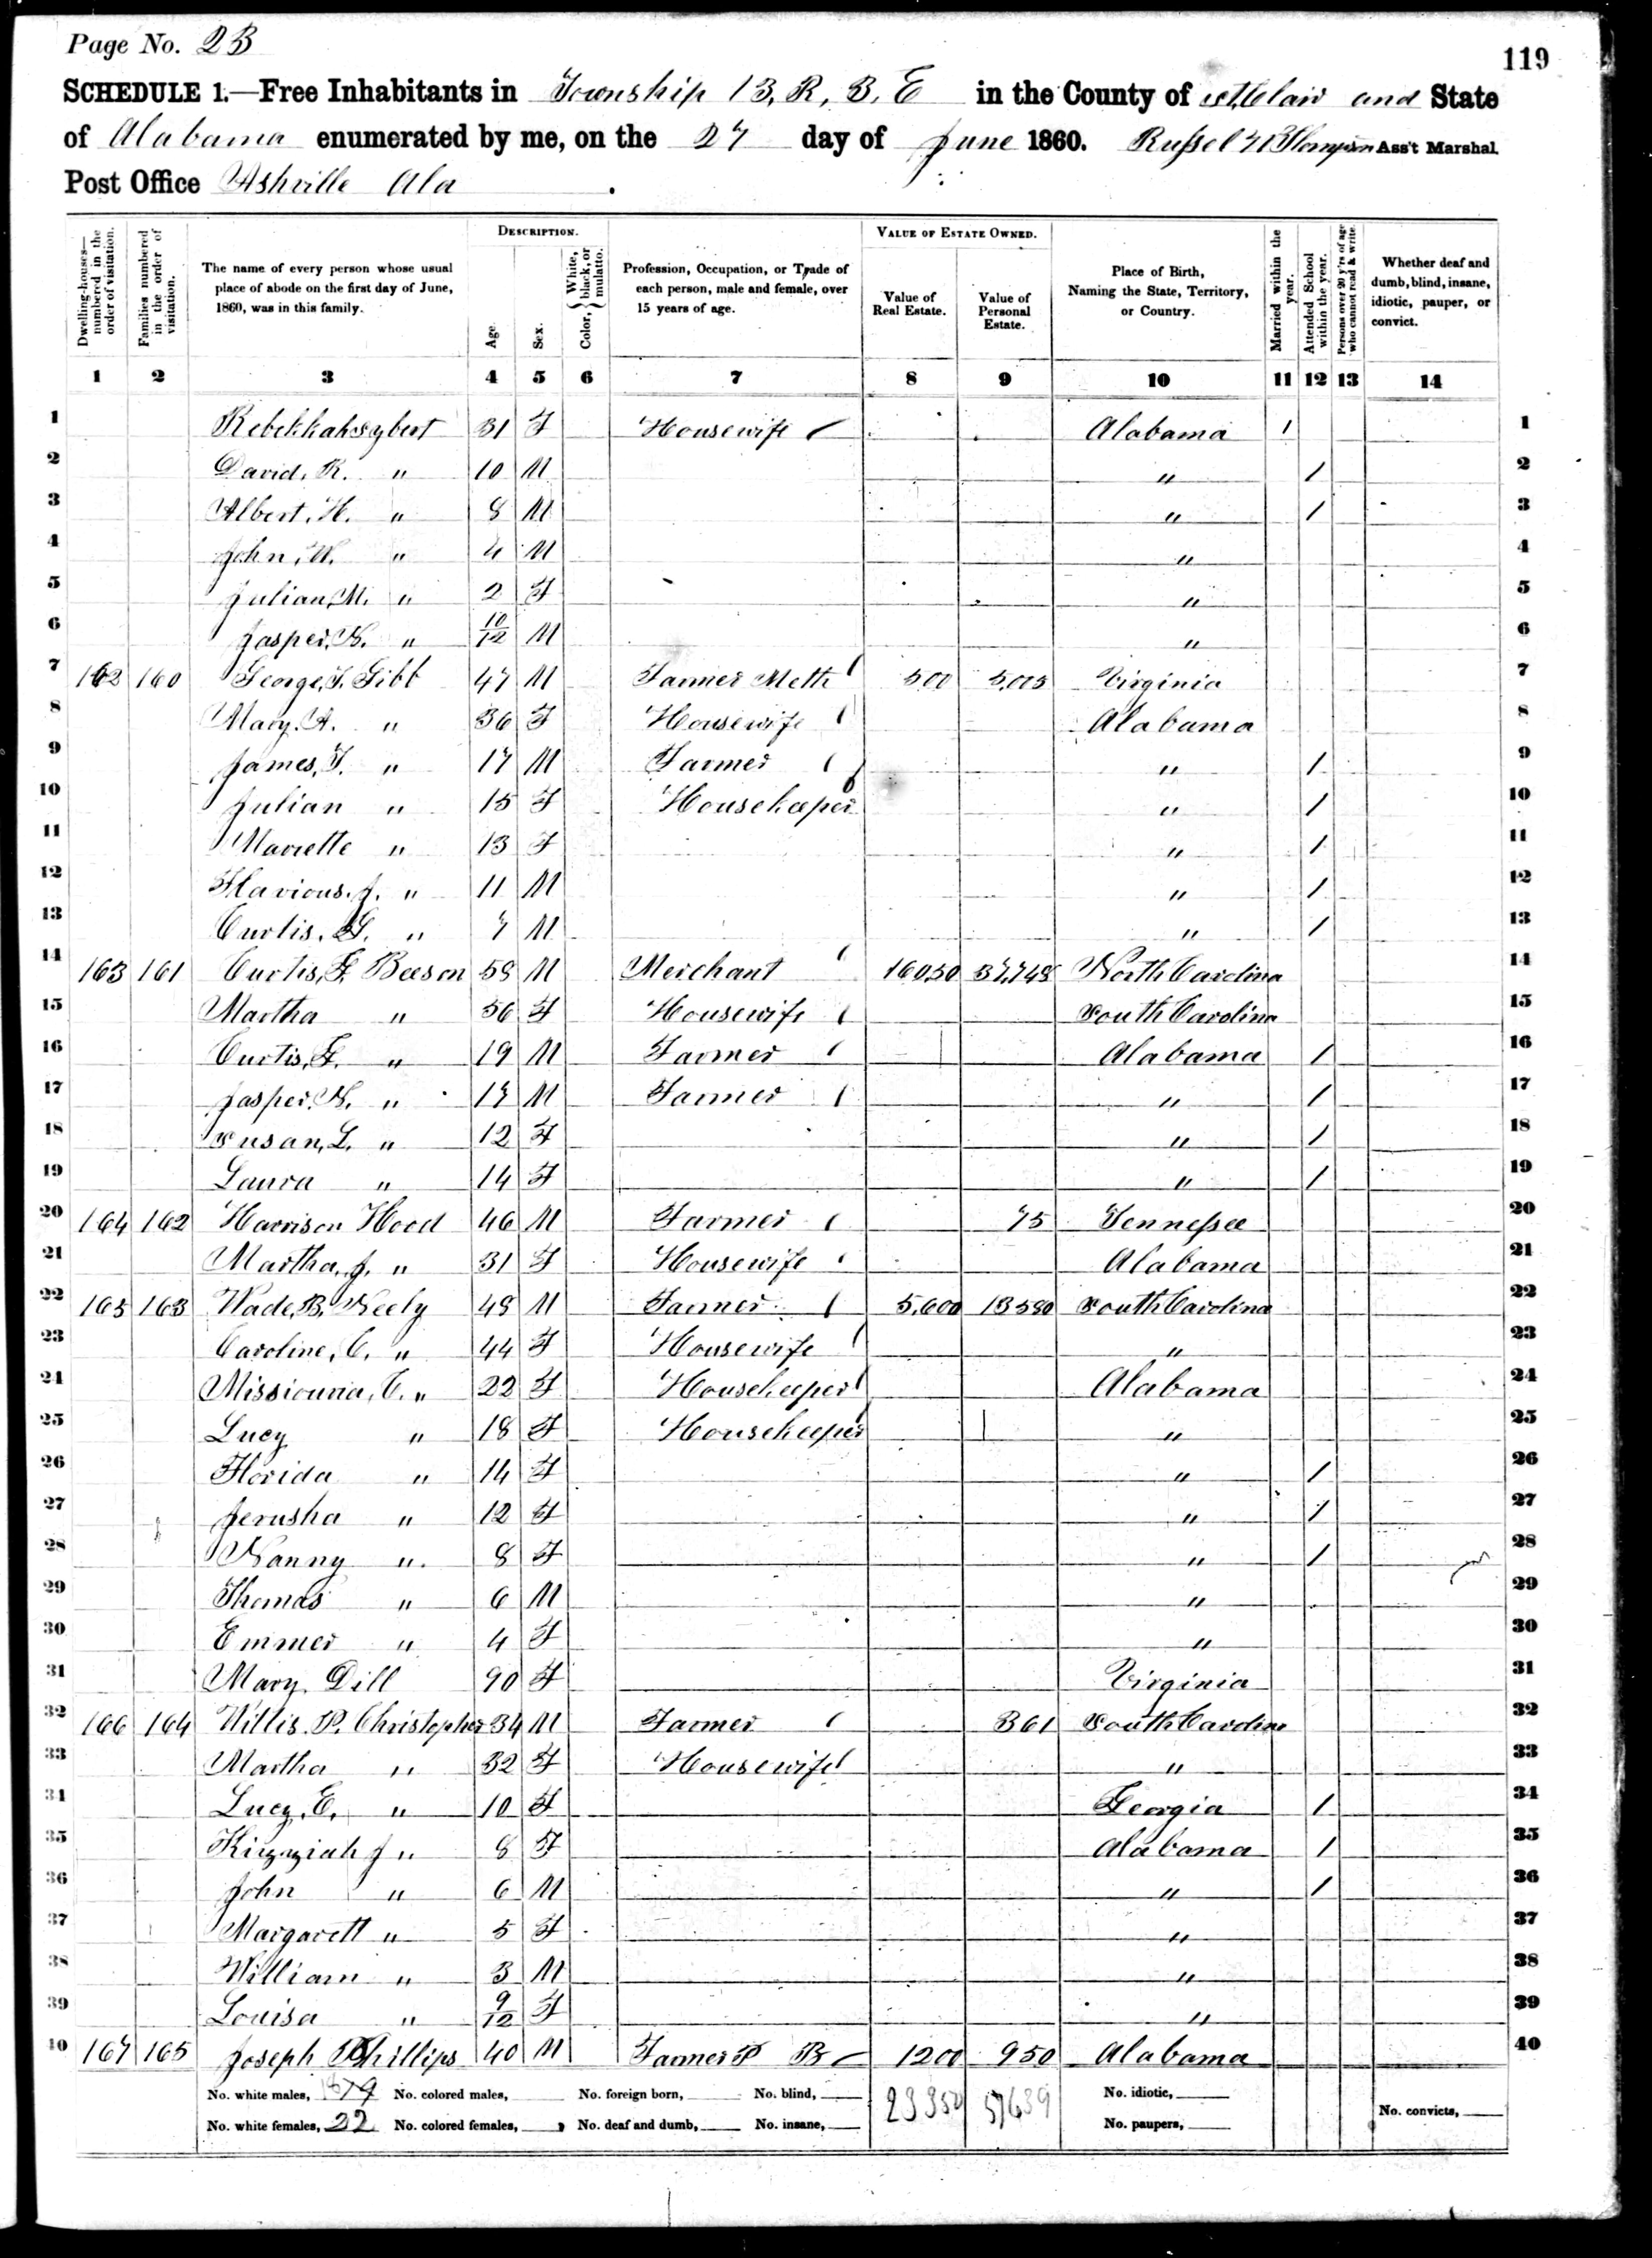 Page No. 23
119
SCHEDULE 1.—Free Inhabitants in Township 13, R, 3, E in the County of St Clair and State
of Alabama enumerated by me, on the 27 day of June 1860. Russel Ass't Marshal.
Post Office Ashville Ala
DESCRIPTION. VALUE OF ESTATE OWNED.
Dwelling-houses—numbered in the order of visitation. Families numbered in the order of visitation. The name of every person whose usual place of abode on the first day of June, 1860, was in this family. Age. Sex. Color, { White, black, or mulatto. Profession, Occupation, or Trade of each person, male and female, over 15 years of age. Value of Real Estate. Value of Personal Estate. Place of Birth, Naming the State, Territory, or Country. Married within the year. Attended School within the year. Persons over 20 y'rs of age who cannot read & write. Whether deaf and dumb, blind, insane, idiotic, pauper, or convict.
1 2 3 4 5 6 7 8 9 10 11 12 13 14
1 Rebekkah Sybert 31 F Housewife Alabama 1 1
2 David, R. " 10 M " / 2
3 Albert, H. " 8 M " / 3
4 John, W. " 4 M " 4
5 Julian, M. " 2 F " 5
6 Jasper, N. " 10/12 M " 6
7 162 160 George, T. Gibb 47 M Farmer Meth 500 Virginia 7
8 Mary. A. " 36 F Housewife Alabama 8
9 James, T. " 17 M Farmer " / 9
10 Julian " 15 F Housekeeper " / 10
11 Mariette " 13 F " / 11
12 Flavious. J. " 11 M " / 12
13 Curtis. G. " 7 M " / 13
14 163 161 Curtis, G. Beeson 58 M Merchant 16050 37,748 North Carolina 14
15 Martha " 56 F Housewife South Carolina 15
16 Curtis, G. " 19 M Farmer Alabama / 16
17 Jasper. N. " 17 M Farmer " / 17
18 Susan, L. " 12 F " / 18
19 Laura " 14 F " / 19
20 164 162 Harrison Hood 46 M Farmer 75 Tennessee 20
21 Martha, J. " 31 F Housewife Alabama 21
22 165 163 Wade, B. Neely 48 M Farmer 5,600 13580 South Carolina 22
23 Caroline, C. " 44 F Housewife " 23
24 Missiouria, C. " 22 F Housekeeper Alabama 24
25 Lucy " 18 F Housekeeper " 25
26 Florida " 14 F " / 26
27 Jerusha " 12 F " / 27
28 Nanny " 8 F " / 28
29 Thomas " 6 M " 29
30 Emmer " 4 F " 30
31 Mary. Dill 90 F Virginia 31
32 166 164 Willis. P. Christopher 34 M Farmer 361 South Carolina 32
33 Martha " 32 F Housewife " 33
34 Lucy, E. " 10 F Georgia / 34
35 Kizziah J " 8 F Alabama / 35
36 John " 6 M " / 36
37 Margarett " 5 F " 37
38 William " 3 M " 38
39 Louisa " 9/12 F " 39
40 167 165 Joseph Phillips 40 M Farmer P B 1200 950 Alabama 40
No. white males, No. colored males, No. foreign born, No. blind, 23350 57639 No. idiotic,
No. white females, 22 No. colored females, No. deaf and dumb, No. insane, No. paupers, No. convicts,